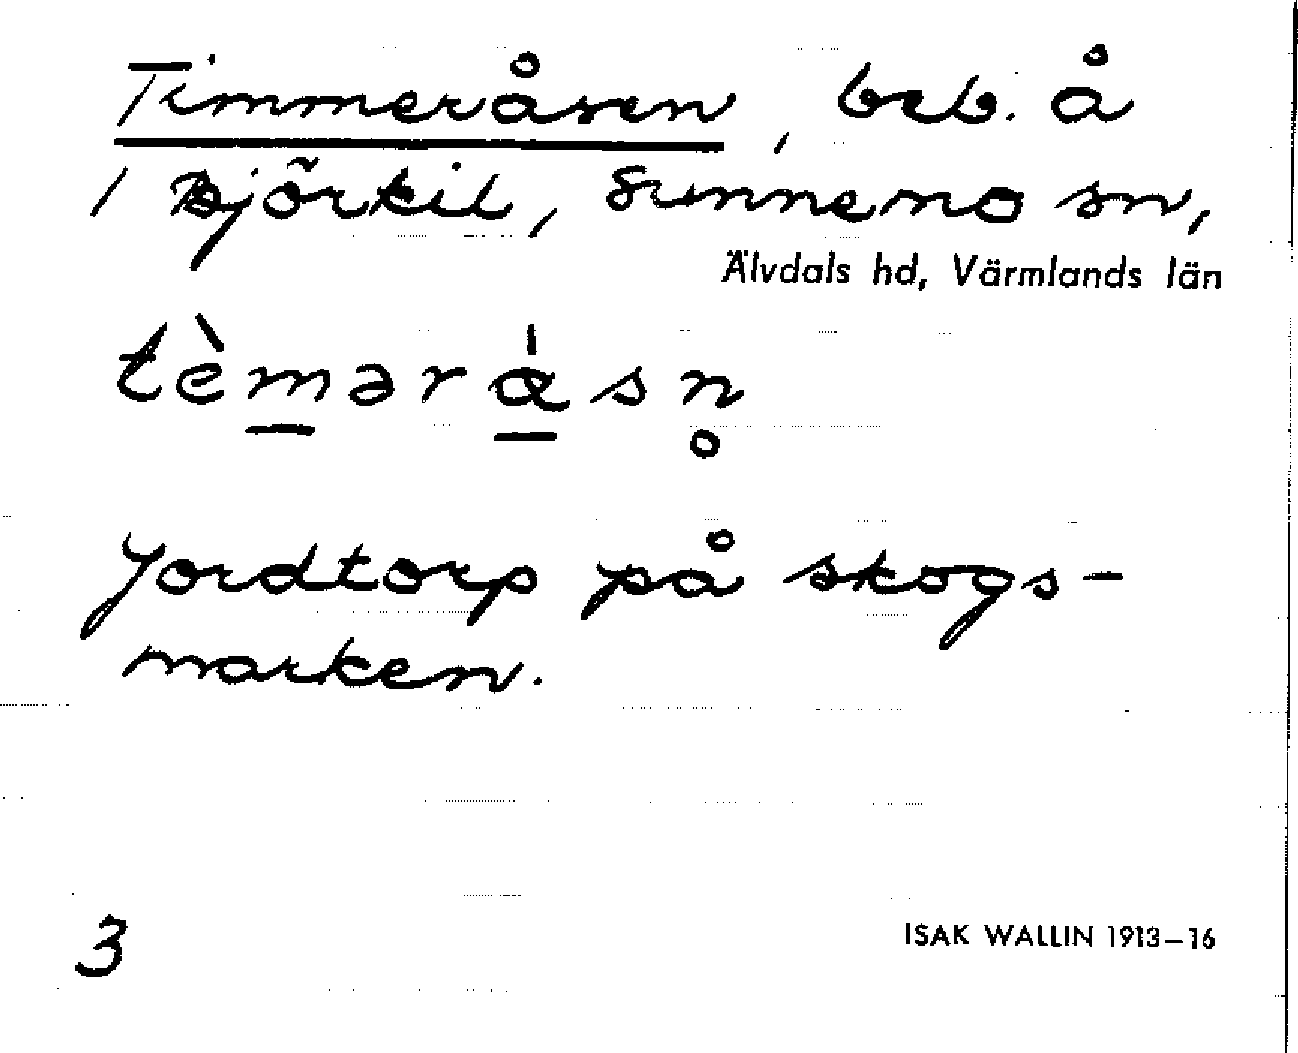 Timmeråsen, beb. å
1 Björkil, Sunnemo sn,
Älvdals hd, Värmlands län
tèmərásn̥
Jordtorp på skogs-
marken.
3
ISAK WALLIN 1913–16